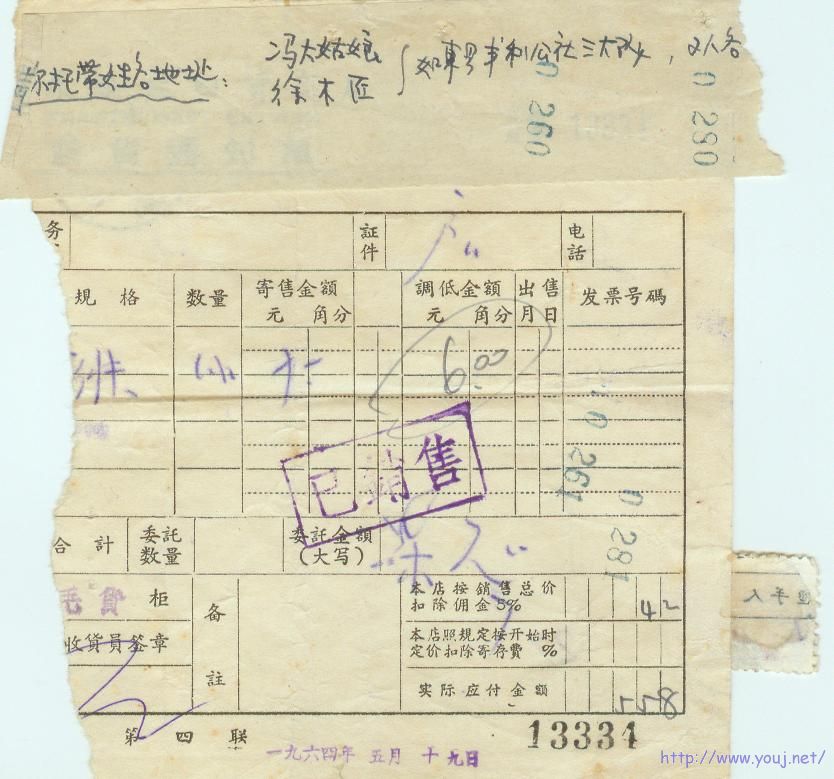 冯大姑娘
托带姓名地址:
徐木匠
如東县丰利公社三大队
0 260
0 290
务
証件
电話
规格
数量
寄售金额
元 角分
調低金额
元 角分
出售
月日
发票号碼
6.00
已销售
0 261
0 281
合計
委託数量
委託金额
(大写)
毛貨 柜
收貨員签章
备註
本店按銷售总价
扣除佣金5%
42
本店照規定按开始时
定价扣除寄存費 %
实际应付金额
558
手人
第四联
一九六四年 五月 十九日
13334
http://www.youj.net/